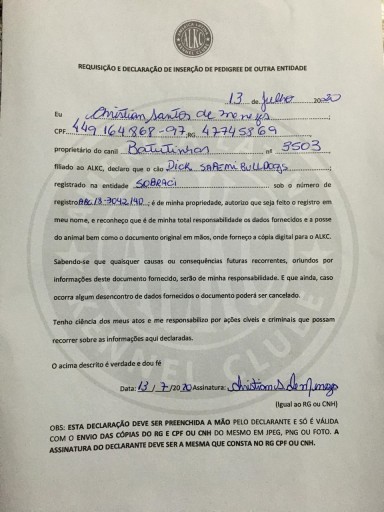 ALKC
REQUISIÇÃO E DECLARAÇÃO DE INSERÇÃO DE PEDIGREE DE OUTRA ENTIDADE
13 de Julho 2020
Eu Christian Santos de Menezes
CPF 449 164 868-97 RG 47745869
proprietário do canil Batutinhas nº 5503
filiado ao ALKC, declaro que o cão DICK SAREMI BULLDOGS
registrado na entidade SOBRACI sob o número de
registro ABC/18-3042/40; é de minha propriedade, autorizo que seja feito o registro em
meu nome, e reconheço que é de minha total responsabilidade os dados fornecidos e a posse
do animal bem como o documento original em mãos, onde forneço a cópia digital para o ALKC.
Sabendo-se que quaisquer causas ou consequências futuras recorrentes, oriundos por
informações deste documento fornecido, serão de minha responsabilidade. E que ainda, caso
ocorra algum desencontro de dados fornecidos o documento poderá ser cancelado.
Tenho ciência dos meus atos e me responsabilizo por ações cíveis e criminais que possam
recorrer sobre as informações aqui declaradas.
O acima descrito é verdade e dou fé
Data: 13 / 7 /2020 Assinatura: Christian S de Menezes
(Igual ao RG ou CNH)
OBS: ESTA DECLARAÇÃO DEVE SER PREENCHIDA A MÃO PELO DECLARANTE E SÓ É VÁLIDA
COM O ENVIO DAS CÓPIAS DO RG E CPF OU CNH DO MESMO EM JPEG, PNG OU FOTO. A
ASSINATURA DO DECLARANTE DEVE SER A MESMA QUE CONSTA NO RG CPF OU CNH.